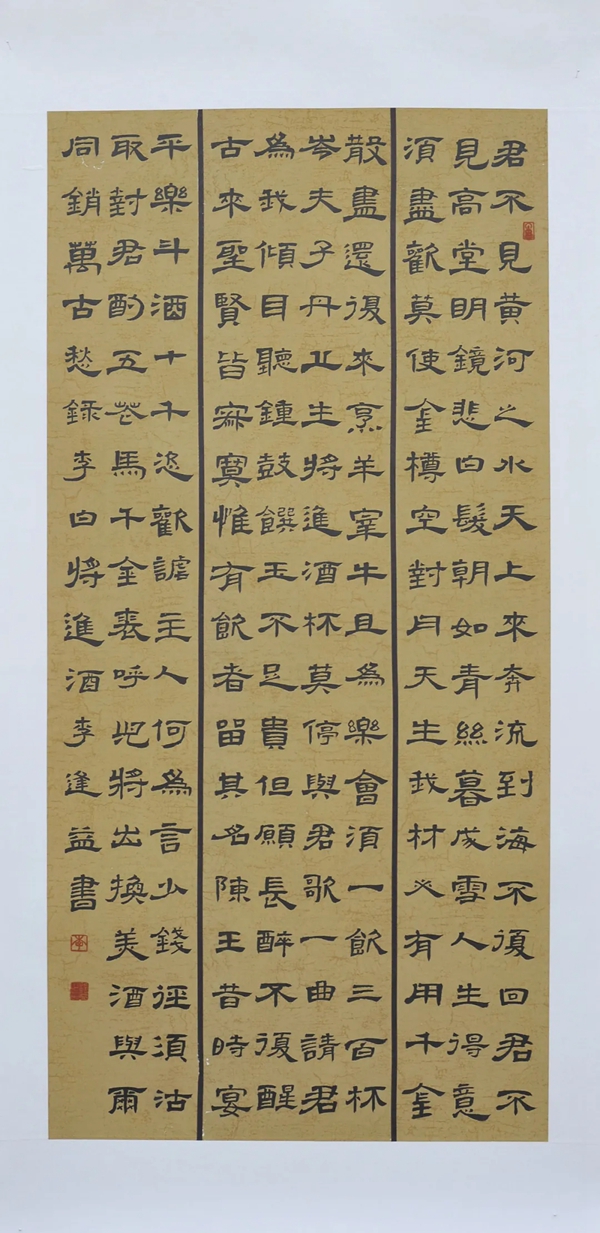 君不見黃河之水天上來奔流到海不復回君不
見高堂明鏡悲白髮朝如青絲暮成雪人生得意
須盡歡莫使金樽空對月天生我材必有用千金
散盡還復來烹羊宰牛且為樂會須一飲三百杯
岑夫子丹丘生將進酒杯莫停與君歌一曲請君
為我傾目聽鍾鼓饌玉不足貴但願長醉不復醒
古來聖賢皆寂寞惟有飲者留其名陳王昔時宴
平樂斗酒十千恣歡謔主人何為言少錢徑須沽
取對君酌五花馬千金裘呼兒將出換美酒與爾
同銷萬古愁錄李白將進酒李逢益書